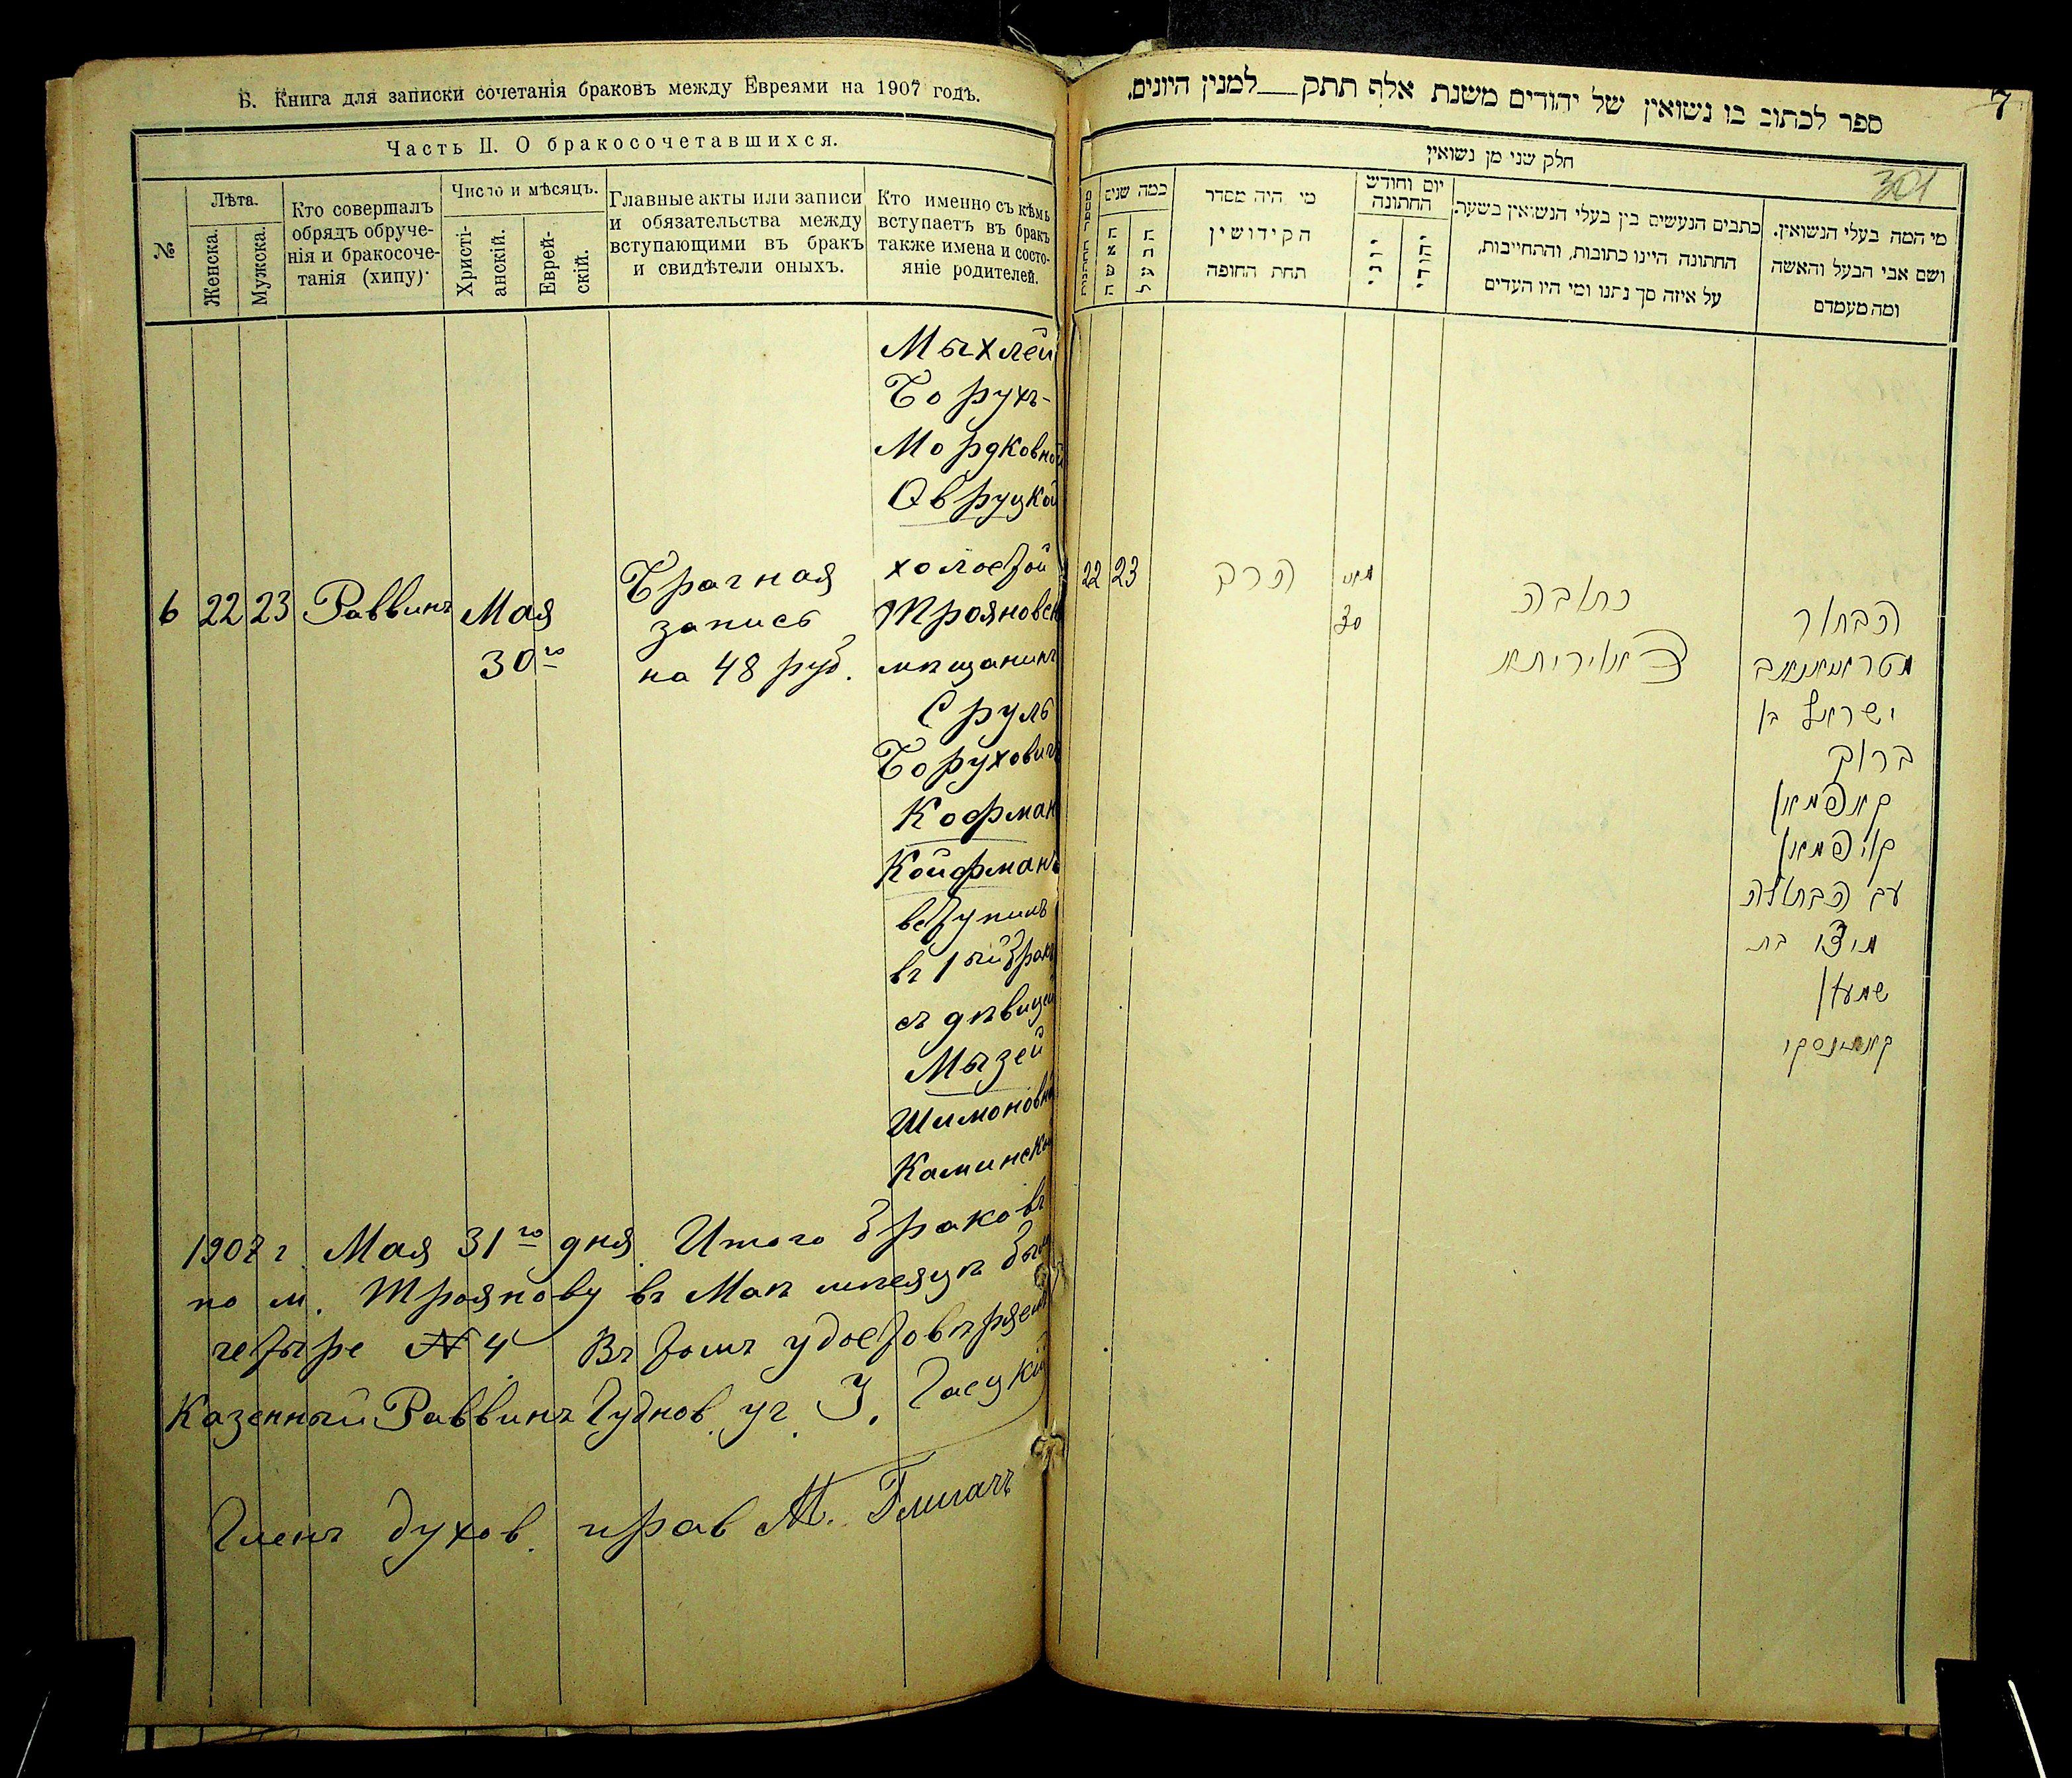 Б. Книга для записки сочетанія браковъ между Евреями на 1907 годъ.
Часть II. О бракосочетавшихся.
№
Лѣта.
Женска.
Мужска.
Кто совершалъ
обрядъ обруче-
нія и бракосоче-
танія (хипу)·
Число и мѣсяцъ.
Христі-
анскій.
Еврей-
скій.
Главные акты или записи
и обязательства между
вступающими въ бракъ
и свидѣтели оныхъ.
Кто именно съ кѣмъ
вступаетъ въ бракъ
также имена и состо-
яніе родителей.
Мыхлей
Борухъ-
Мордковной
Овруцкой
6 22 23 Раввинъ Мая
30го
Брачная
запись
на 48 руб.
холостой
Трояновск
мѣщанинъ
Сруль
Боруховичъ
Кофман
Койфманъ
вступилъ
въ 1ый бракъ
съ дѣвицей
Мызей
Шимоновной
Каминской
1907 г. Мая 31го дня. Итого браковъ
по м. Троянову въ Маѣ мѣсяцѣ было
четыре № 4 Въ томъ удостовѣряемъ
Казенный Раввинъ Чуднов. уч.
Членъ духов. прав М.
7
ספר לכתוב בו נשואין של יהודים משנת אלף תתק למנין היונים.
301
חלק שני מן נשואין
מספר החתונות
כמה שנים
האשה
הבעל
מי היה מסדר
הקידושין
תחת החופה
יום וחודש
החתונה
יוני
יהודי
כתבים הנעשים בין בעלי הנשואין בשער.
החתונה היינו כתובות, והתחייבות,
על איזה סך נתנו ומי היו העדים
מי המה בעלי הנשואין.
ושם אבי הבעל והאשה
ומה מעמדם
22 23
הרב
מאי
30
כתובה
דאוריתא
הבחור
ישראל בן
ברוך
קאפמאן
קויפמאן
עב הבתולה
מיזי בת
שמעון
קאמינסקי